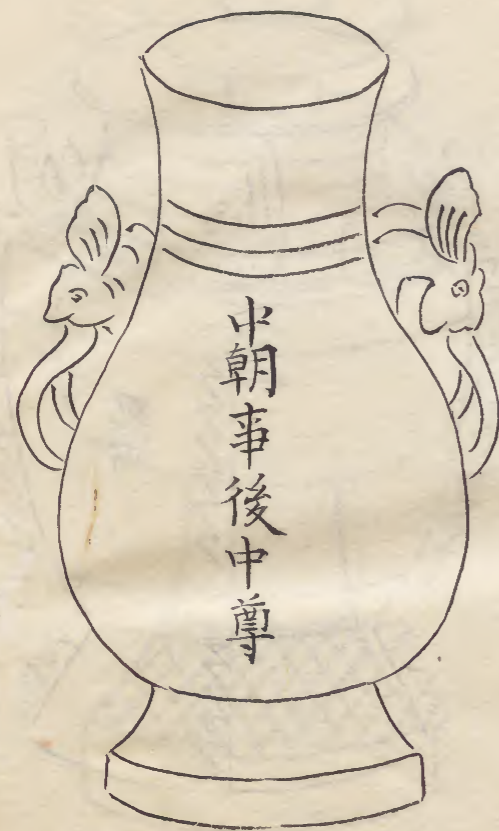 中朝事後中尊